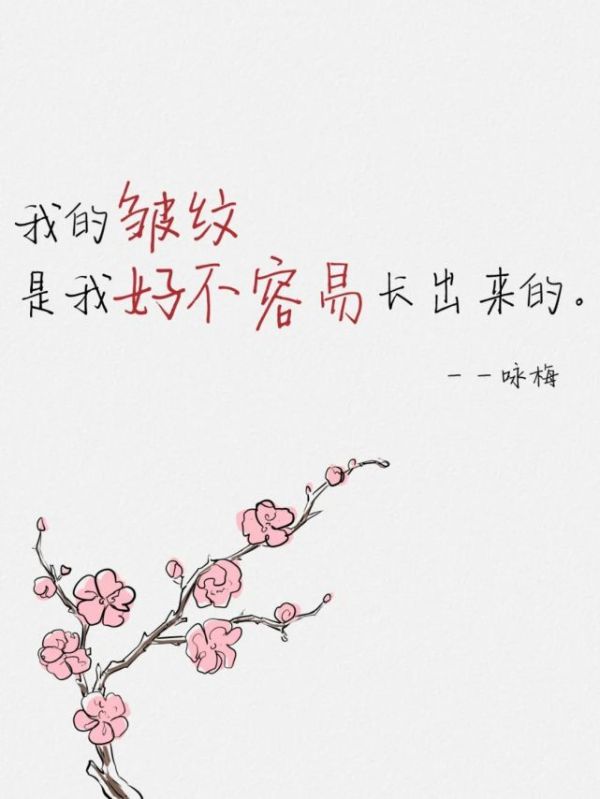 我的皱纹
是我好不容易长出来的。
——咏梅